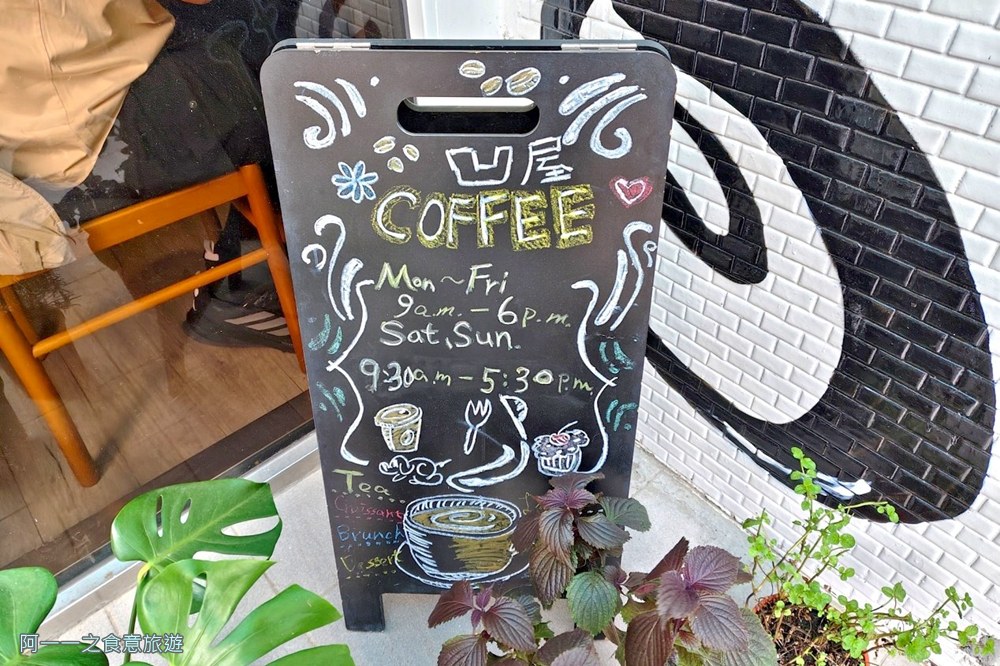 凹屋
COFFEE
Mon~Fri
9a.m.-6p.m.
Sat、Sun.
9:30a.m-5:30p.m
Tea
Brunch
阿一一之食意旅遊